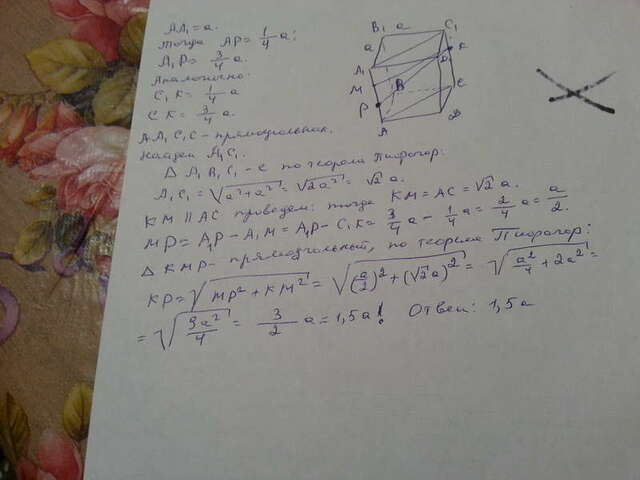 AA₁ = a.
тогда AP = 1/4 a;
A₁P = 3/4 a.
Аналогично:
C₁K = 1/4 a
CK = 3/4 a.
AA₁C₁C - прямоугольник.
Найдем A₁C₁.
Δ A₁B₁C₁ - с по теореме Пифагор:
A₁C₁ = √(a²+a²) = √(2a²) = √2 a.
KM || AC проведем: тогда KM = AC = √2 a.
MP = A₁P - A₁M = A₁P - C₁K = 3/4 a - 1/4 a = 2/4 a = a/2.
Δ KMP - прямоугольный, по теореме Пифагор:
KP = √(MP² + KM²) = √((a/2)² + (√2a)²) = √(a²/4 + 2a²) =
= √(9a²/4) = 3/2 a = 1,5a! Ответ: 1,5a
B₁ a C₁
a K
A₁ D₁
M B C
P
A D